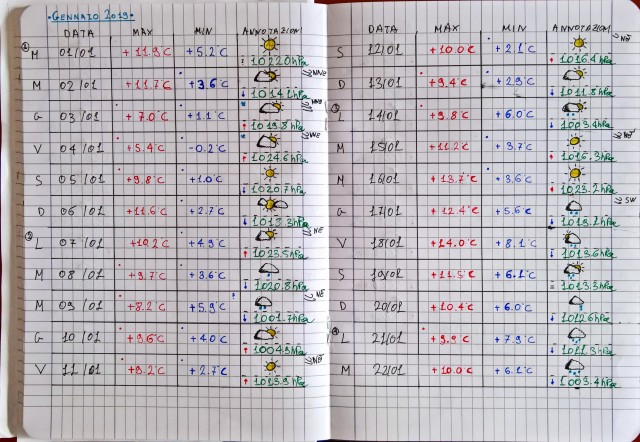 • GENNAIO 2019 •
DATA MAX MIN ANNOTAZIONI
M 01/01 +11.9°C +5.2°C
1022.0hPa
M 02/01 +11.7°C +3.6°C NNE
1014.2hPa
G 03/01 +7.0°C +1.1°C NNE
1019.8hPa
V 04/01 +5.4°C -0.2°C NNE
1024.6hPa
S 05/01 +9.8°C +1.0°C
1020.7hPa
D 06/01 +11.6°C +2.7°C
1013.3hPa
L 07/01 +10.2°C +4.9°C NE
1023.5hPa
M 08/01 +9.7°C +3.6°C
1020.8hPa
M 09/01 +8.2°C +5.9°C NE
1001.7hPa
G 10/01 +9.6°C +4.0°C
1004.5hPa
V 11/01 +9.2°C +2.7°C NØ
1013.9hPa
DATA MAX MIN ANNOTAZIONI
S 12/01 +10.0°C +2.1°C NØ
1016.4hPa
D 13/01 +9.4°C +2.9°C
1011.8hPa
L 14/01 +9.8°C +6.0°C
1003.4hPa
M 15/01 +11.2°C +3.7°C NØ
1016.3hPa
M 16/01 +13.7°C +3.6°C
1023.2hPa
G 17/01 +12.4°C +5.6°C SW
1019.2hPa
V 18/01 +14.0°C +8.1°C
1013.6hPa
S 19/01 +11.5°C +6.1°C
1013.3hPa
D 20/01 +10.4°C +6.0°C
1012.6hPa
L 21/01 +9.9°C +7.9°C
1011.3hPa
M 22/01 +10.0°C +6.1°C
1003.4hPa